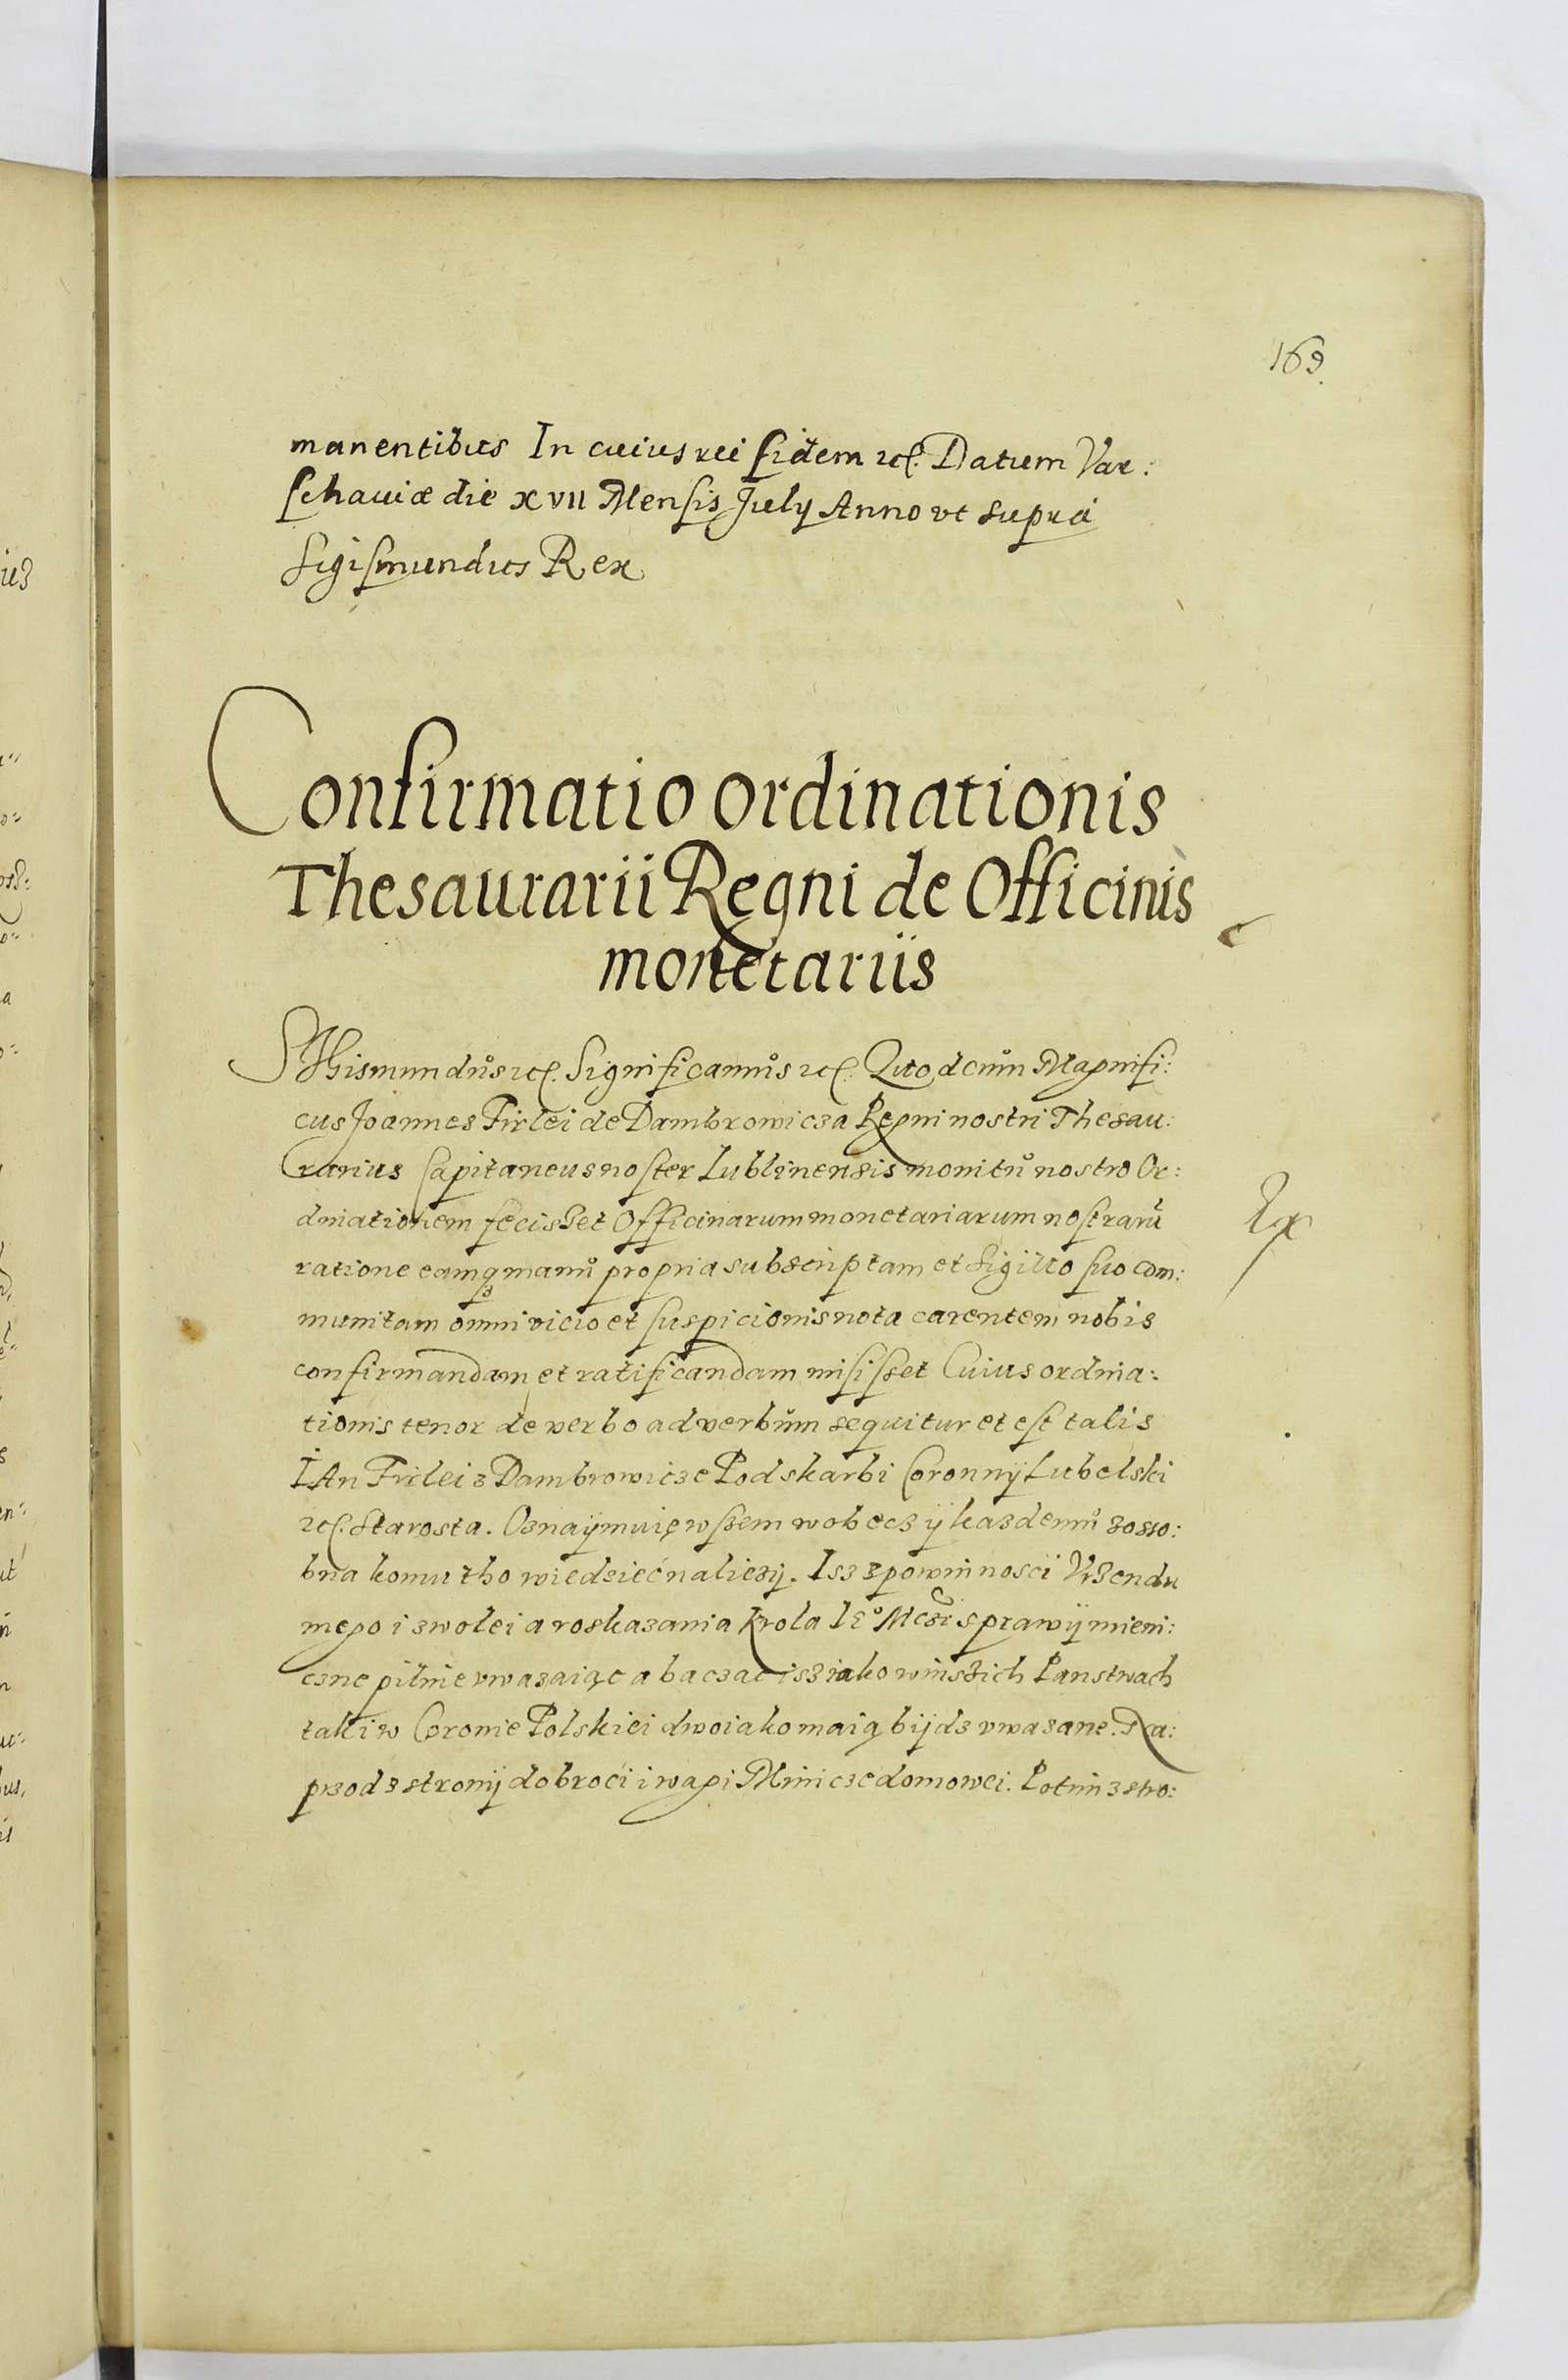 169.
manentibus In cuius rei fidem etc. Datum Var:
schauiæ die xvii Mensis July Anno vt supra
Sigismundus Rex
Confirmatio ordinationis
Thesaurarii Regni de Officinis
monetariis
SIgismundus etc. Significamus etc. Quod cum Magnifi:
cus Joannes Firlei de Dambrowicza Regni nostri Thesau:
rarius Capitaneus noster Lublinensis monitu nostro Or:
dinationem fecisset Officinarum monetariarum nostrarū
ratione eamq3 manu propria subscriptam et Sigillo suo com:
munitam omni vicio et suspicionis nota carentem nobis
confirmandam et ratificandam misisset Cuius ordina:
tionis tenor de verbo ad verbum sequitur et est talis
IAn Firlei z Dambrowicze Podskarbi Coronnÿ Lubelski
etc. Starosta. Oznaÿmuię wszem wobecz ÿ kazdemu zosso:
bna komu tho wiedzieć naliezÿ. Isz z powinnosci Vrzendu
mego i z wolei a roskazania Krola Ie° Mczi sprawÿ mieni:
czne pilnie vwazaiąc a baczac isz iako w inszich Panstwach
tak i w Coronie Polskiei dwoiako maią bÿdz vwazane. Na:
przod z stronÿ dobroci i wagi Minicze domowei. Potim z stro: